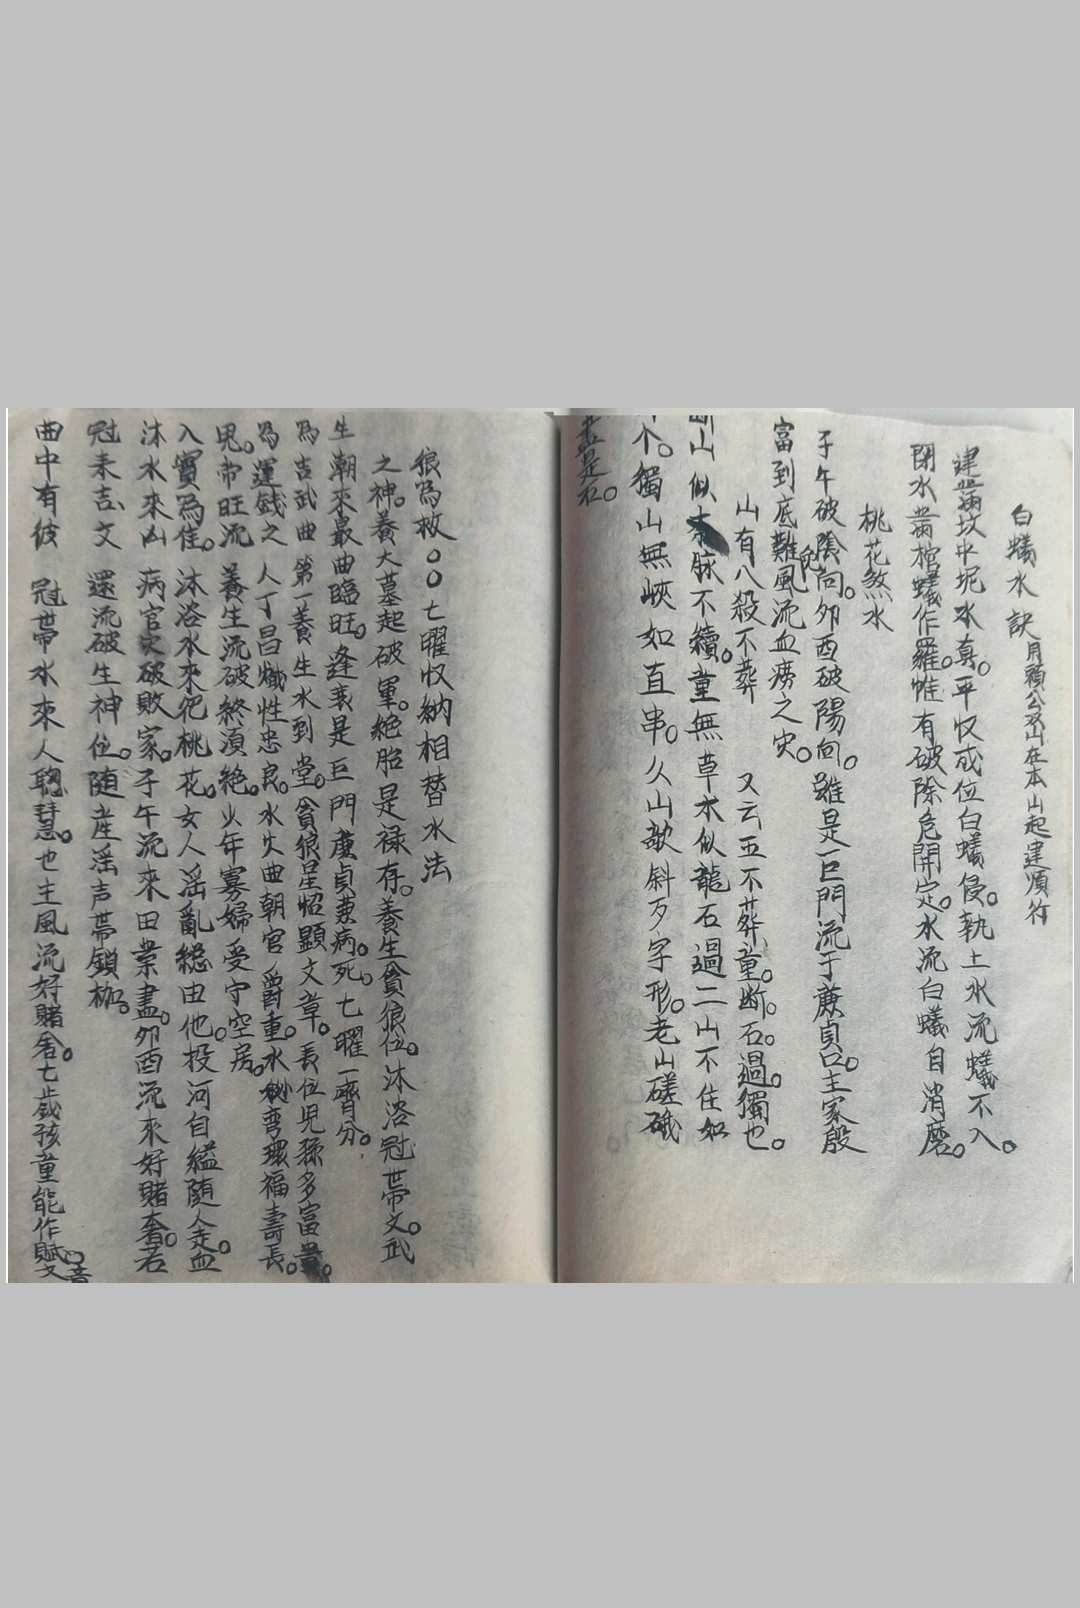 白蟻水訣 用賴公 在本山起建順行
建 滿坟中坭水真。平収成位白蟻侵。執土水流蟻不入。
閉水 棺蟻作羅帷有破除危開定。水流白蟻自消磨。
桃花煞水
子午破陰向。夘酉破陽向。雖是巨門流于蔗貞口。主家殷
富到底難免風流血痨之灾。
山有八殺不葬 又云五不葬童。断。石。過。獨也。
断山似 脉不續。童無草木似龍石過二山不住如
个。獨山無峽如直串。久山 斜歹字形。老山磋砥
是石。
狼為救〇〇七曜収納相替水法
之神。養大墓起破軍。絕胎是禄存。養生貪狼位。沐浴冠帶文。武
生朝來最曲臨旺。逢衰是巨門 貞蒹病。死。七曜一齊分。
為吉武曲第一養生水到堂。貪狼星炤顯文章。長位児孫多富貴。
為運錢之人丁昌熾性忠良。水 曲朝官爵重。水 弯環福壽長。
鬼。帝旺流養生流破終湏絕。少年寡婦受守空房。
入實為佳。沐浴水來犯桃花。女人滛亂総由他。投河自縊隨人走血
沐水來凶病官灾破敗家。子午流來田業盡。夘酉流來好賭奢。若
冠耒吉文還流破生神位。随産滛声帶鎖枷。
曲中有彼冠帶水來人聰慧。也主風流好賭舍。七歲孩童能作賦。文音